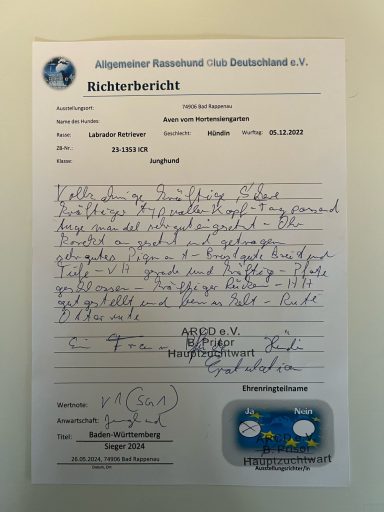 Allgemeiner Rassehund Club Deutschland e.V.
Richterbericht
Ausstellungsort: 74906 Bad Rappenau
Name des Hundes: Aven vom Hortensiengarten
Rasse: Labrador Retriever Geschlecht: Hündin Wurftag: 05.12.2022
ZB-Nr.: 23-1353 ICR
Klasse: Junghund
kräftige
kräftiger typvoller Kopf - passend
Auge mandel sehr gut eingesetzt - Ohr
korrekt angesetzt und getragen
sehr gutes Pigment - Brust gute Breite und
Tiefe - VH gerade und kräftig - Pfote
geschlossen - kräftiger Rücken - HH
gut gestellt und - Rute
Otterrute
ARCD e.V.
B. Prisor
Hauptzuchtwart
Ein Hündin
Gratulation
Ehrenringteilname
Ja Nein
Wertnote: V1 (SG1)
Anwartschaft: Junghund
Titel: Baden-Württemberg
Sieger 2024
ARCD e.V.
B. Prisor
Hauptzuchtwart
26.05.2024, 74906 Bad Rappenau
Datum, Ort
Ausstellungsrichter/in